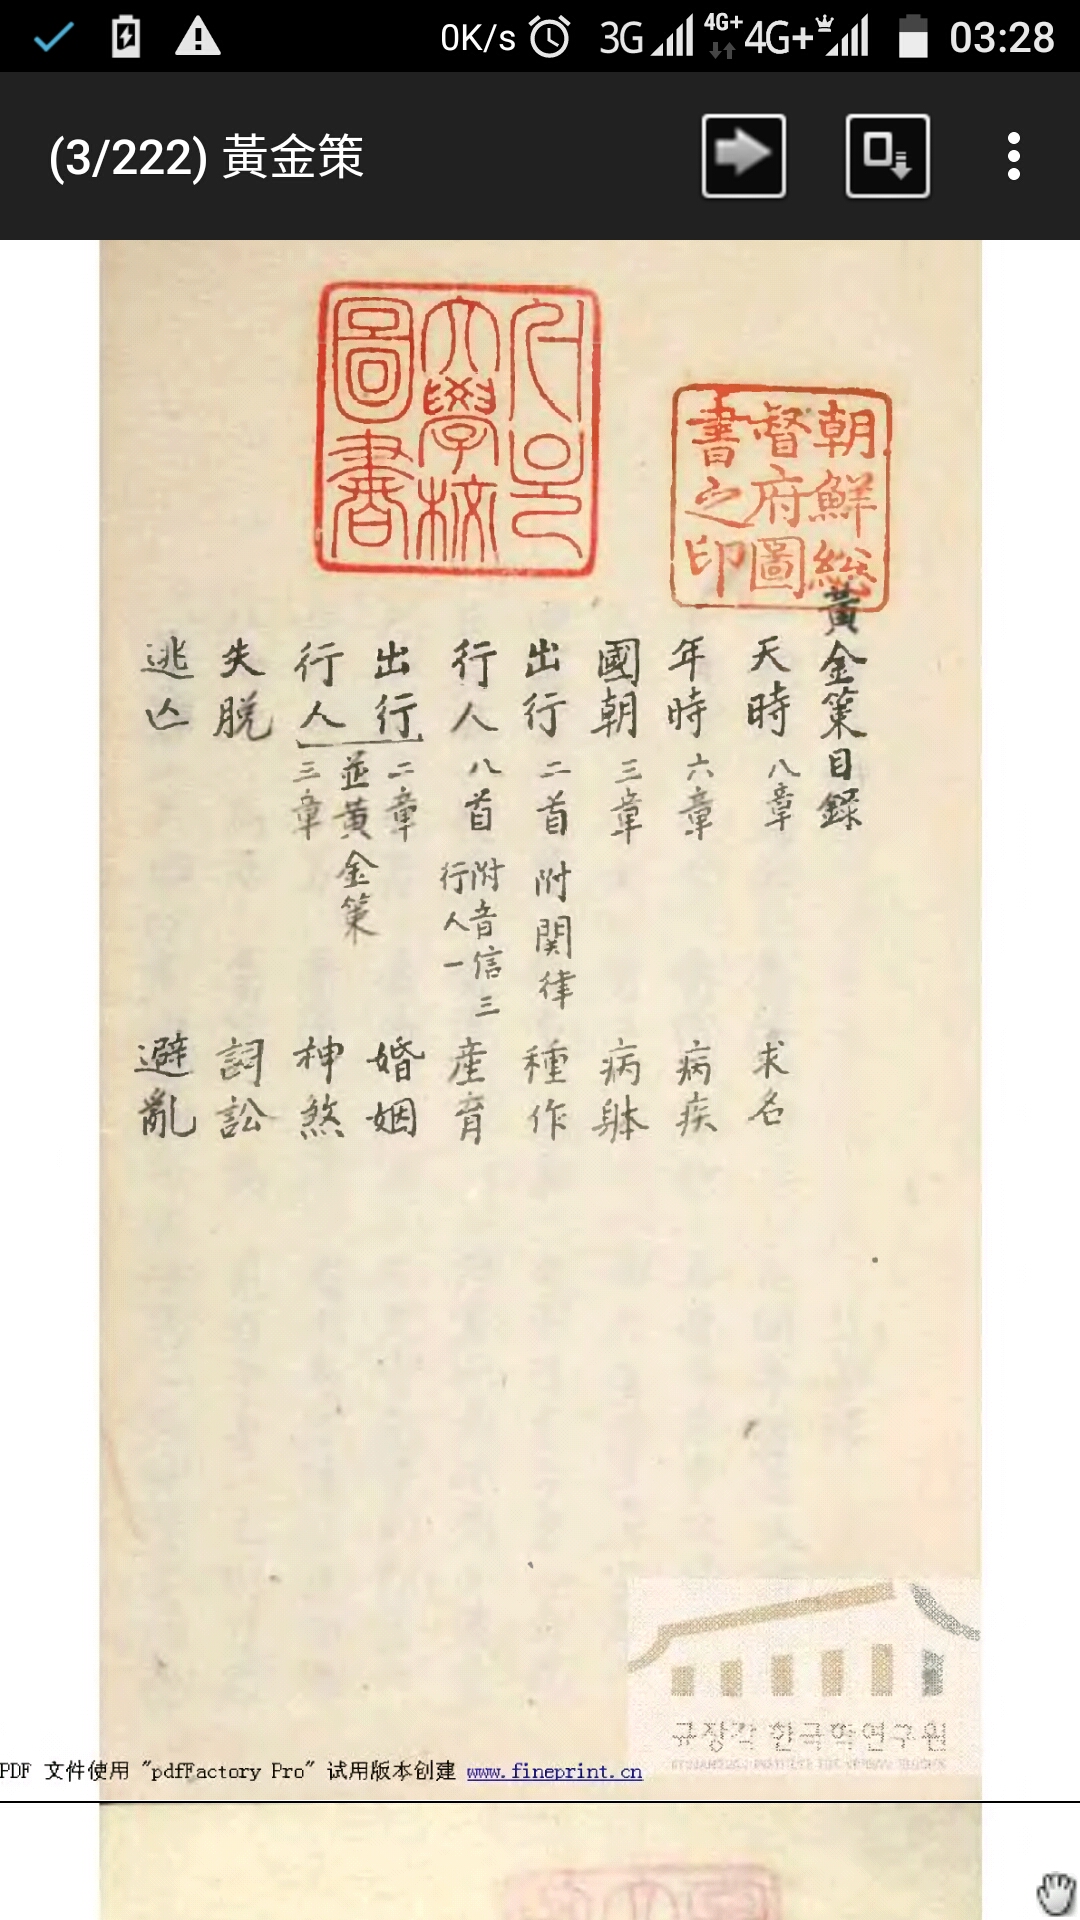 0K/s 3G 4G+ 4G+ 03:28
(3/222) 黃金策
朝鮮総
督府圖
書之印
大學校
圖書
黃金策目錄
天時 八章 求名
年時 六章 病疾
國朝 三章 病躰
出行 二首 附関律 種作
行人 八首 附音信三 行人一 産育
出行 二章 婚姻
並黃金策
行人 三章 神煞
失脫 詞訟
逃亡 避亂
규장각 한국학연구원
PDF 文件使用 "pdfFactory Pro" 试用版本创建 www.fineprint.cn